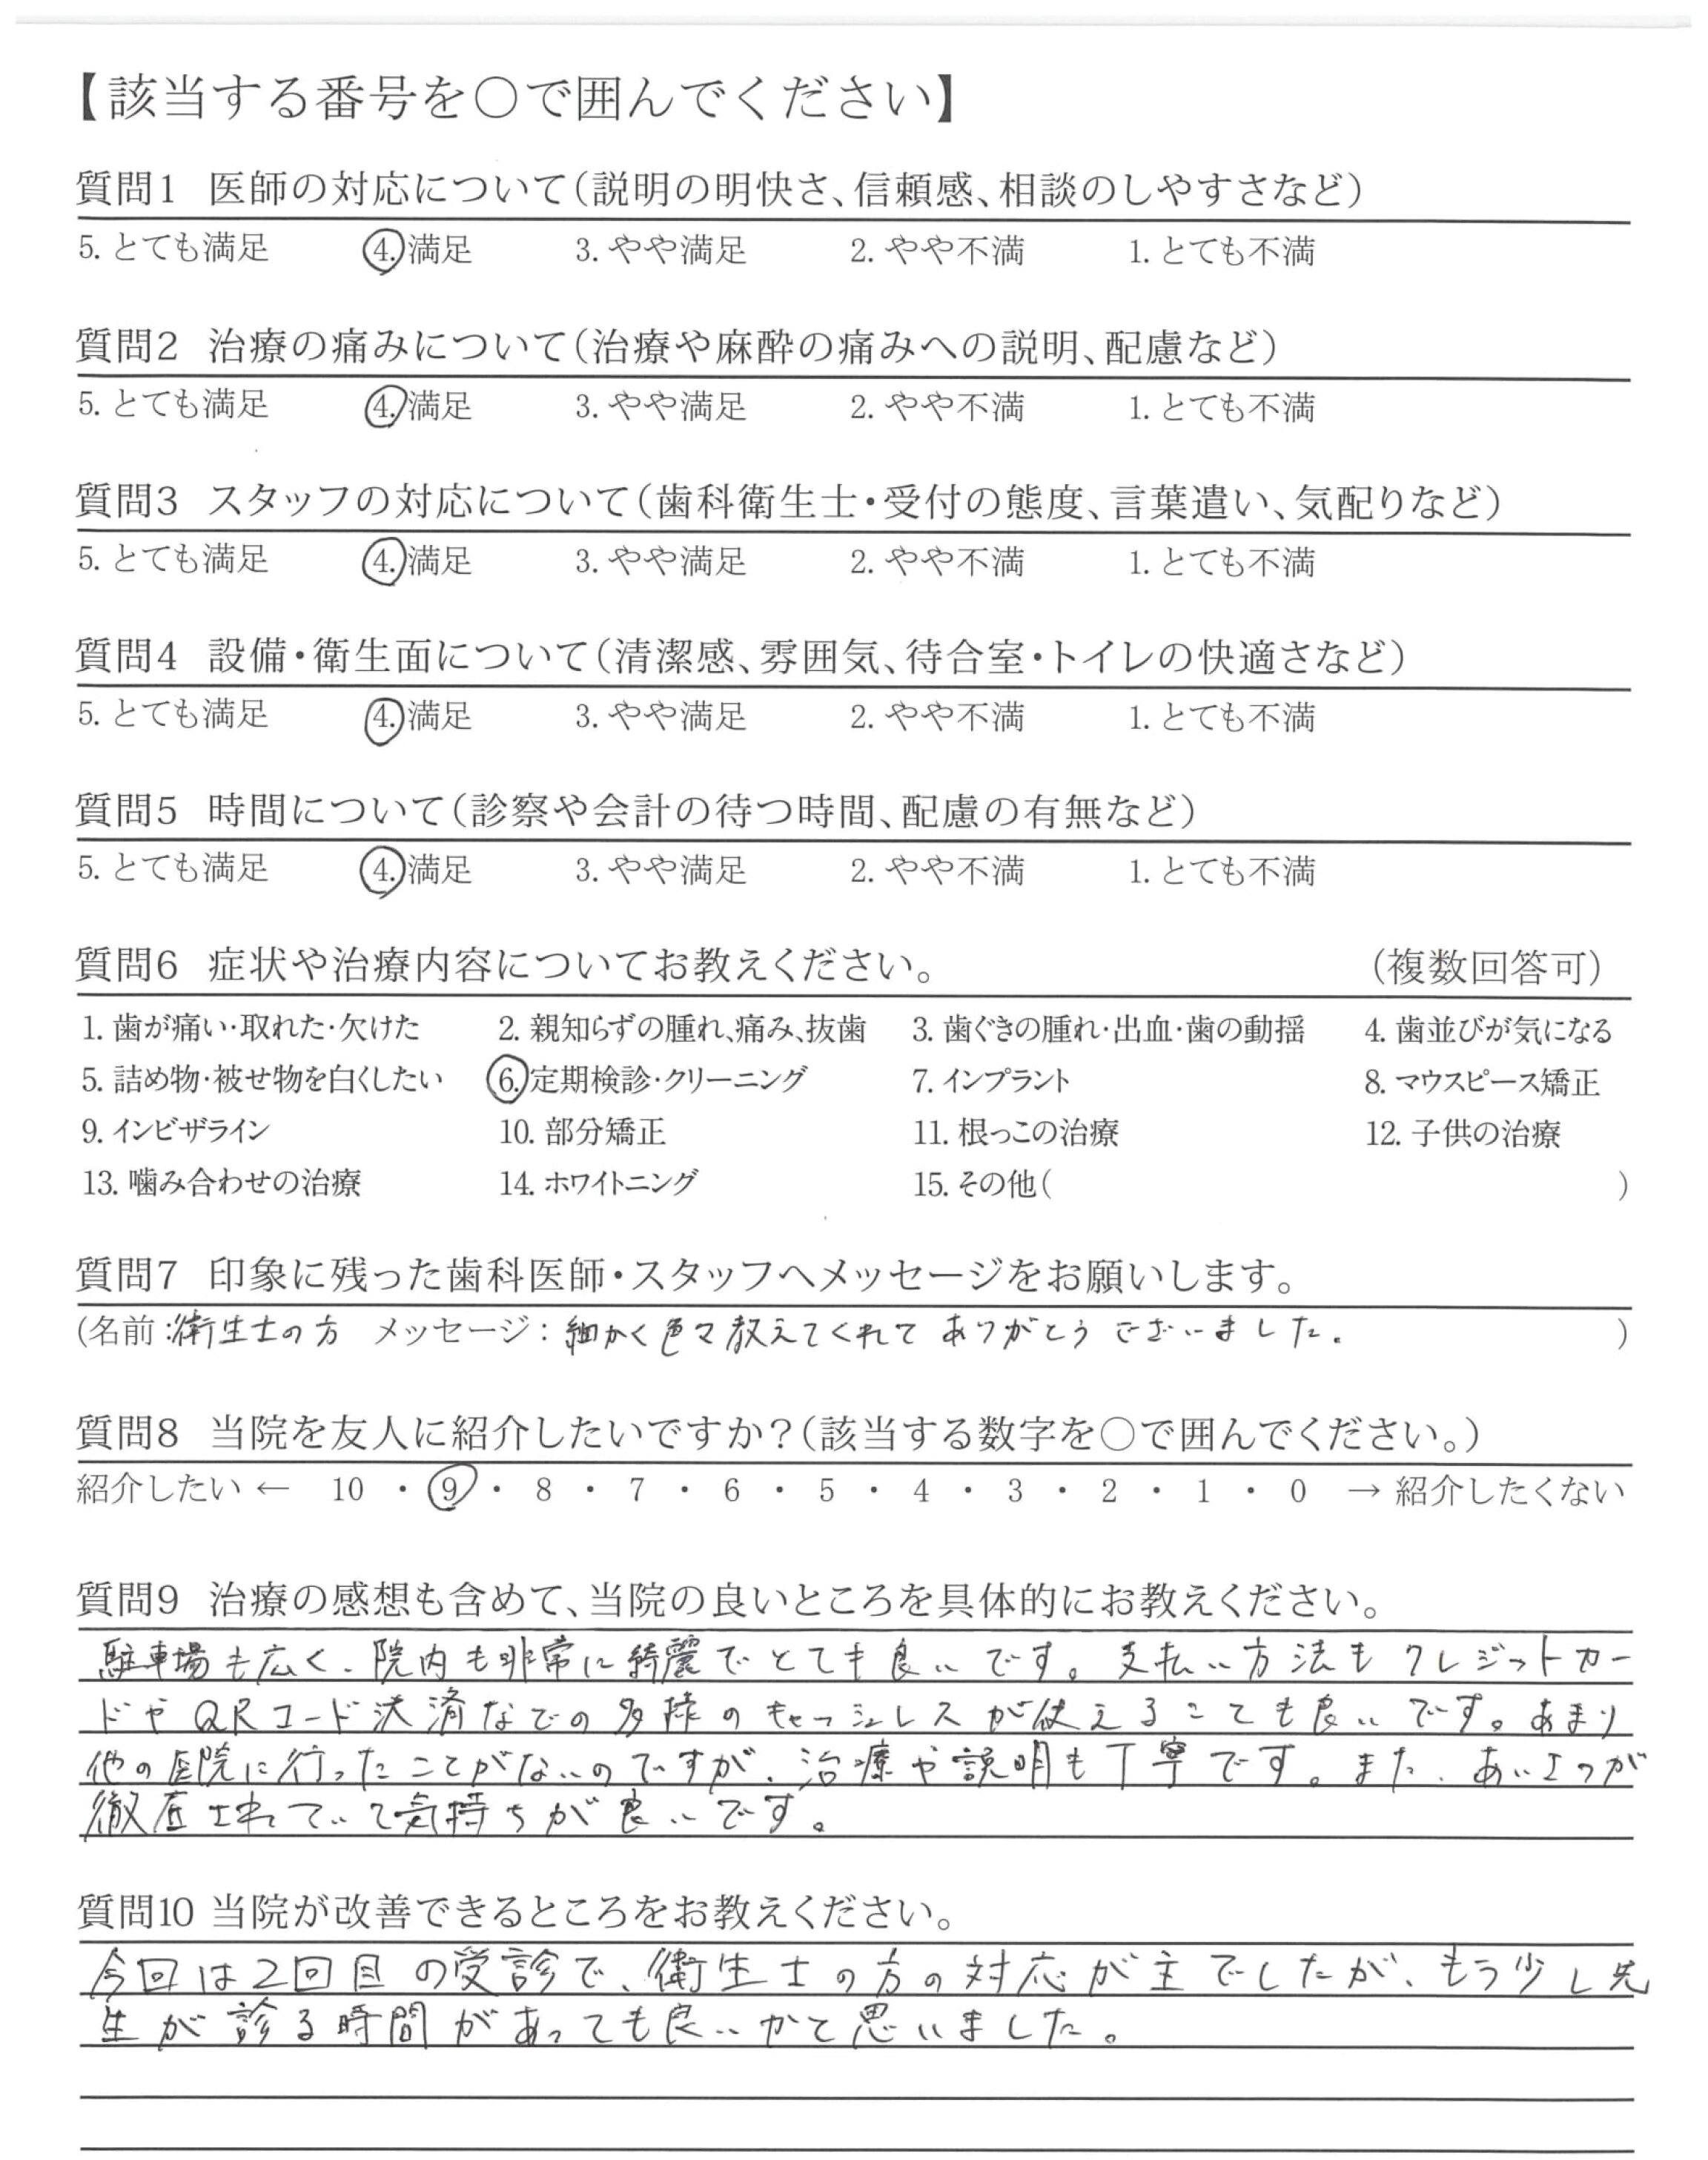 【該当する番号を○で囲んでください】
質問1 医師の対応について(説明の明快さ、信頼感、相談のしやすさなど)
5. とても満足 4. 満足 3. やや満足 2. やや不満 1. とても不満
質問2 治療の痛みについて(治療や麻酔の痛みへの説明、配慮など)
5. とても満足 4. 満足 3. やや満足 2. やや不満 1. とても不満
質問3 スタッフの対応について(歯科衛生士・受付の態度、言葉遣い、気配りなど)
5. とても満足 4. 満足 3. やや満足 2. やや不満 1. とても不満
質問4 設備・衛生面について(清潔感、雰囲気、待合室・トイレの快適さなど)
5. とても満足 4. 満足 3. やや満足 2. やや不満 1. とても不満
質問5 時間について(診察や会計の待つ時間、配慮の有無など)
5. とても満足 4. 満足 3. やや満足 2. やや不満 1. とても不満
質問6 症状や治療内容についてお教えください。 (複数回答可)
1. 歯が痛い・取れた・欠けた 2. 親知らずの腫れ、痛み、抜歯 3. 歯ぐきの腫れ・出血・歯の動揺 4. 歯並びが気になる
5. 詰め物・被せ物を白くしたい 6. 定期検診・クリーニング 7. インプラント 8. マウスピース矯正
9. インビザライン 10. 部分矯正 11. 根っこの治療 12. 子供の治療
13. 噛み合わせの治療 14. ホワイトニング 15. その他( )
質問7 印象に残った歯科医師・スタッフへメッセージをお願いします。
(名前:衛生士の方 メッセージ:細かく色々教えてくれてありがとうございました。 )
質問8 当院を友人に紹介したいですか?(該当する数字を○で囲んでください。)
紹介したい ← 10 ・ 9 ・ 8 ・ 7 ・ 6 ・ 5 ・ 4 ・ 3 ・ 2 ・ 1 ・ 0 → 紹介したくない
質問9 治療の感想も含めて、当院の良いところを具体的にお教えください。
駐車場も広く、院内も非常に綺麗でとても良いです。支払い方法もクレジットカー
ドやQRコード決済などの多様のキャッシュレスが使えることも良いです。あまり
他の医院に行ったことがないのですが、治療や説明も丁寧です。また、あいさつが
徹底されていて気持ちが良いです。
質問10 当院が改善できるところをお教えください。
今回は2回目の受診で、衛生士の方の対応が主でしたが、もう少し先
生が診る時間があっても良いかと思いました。